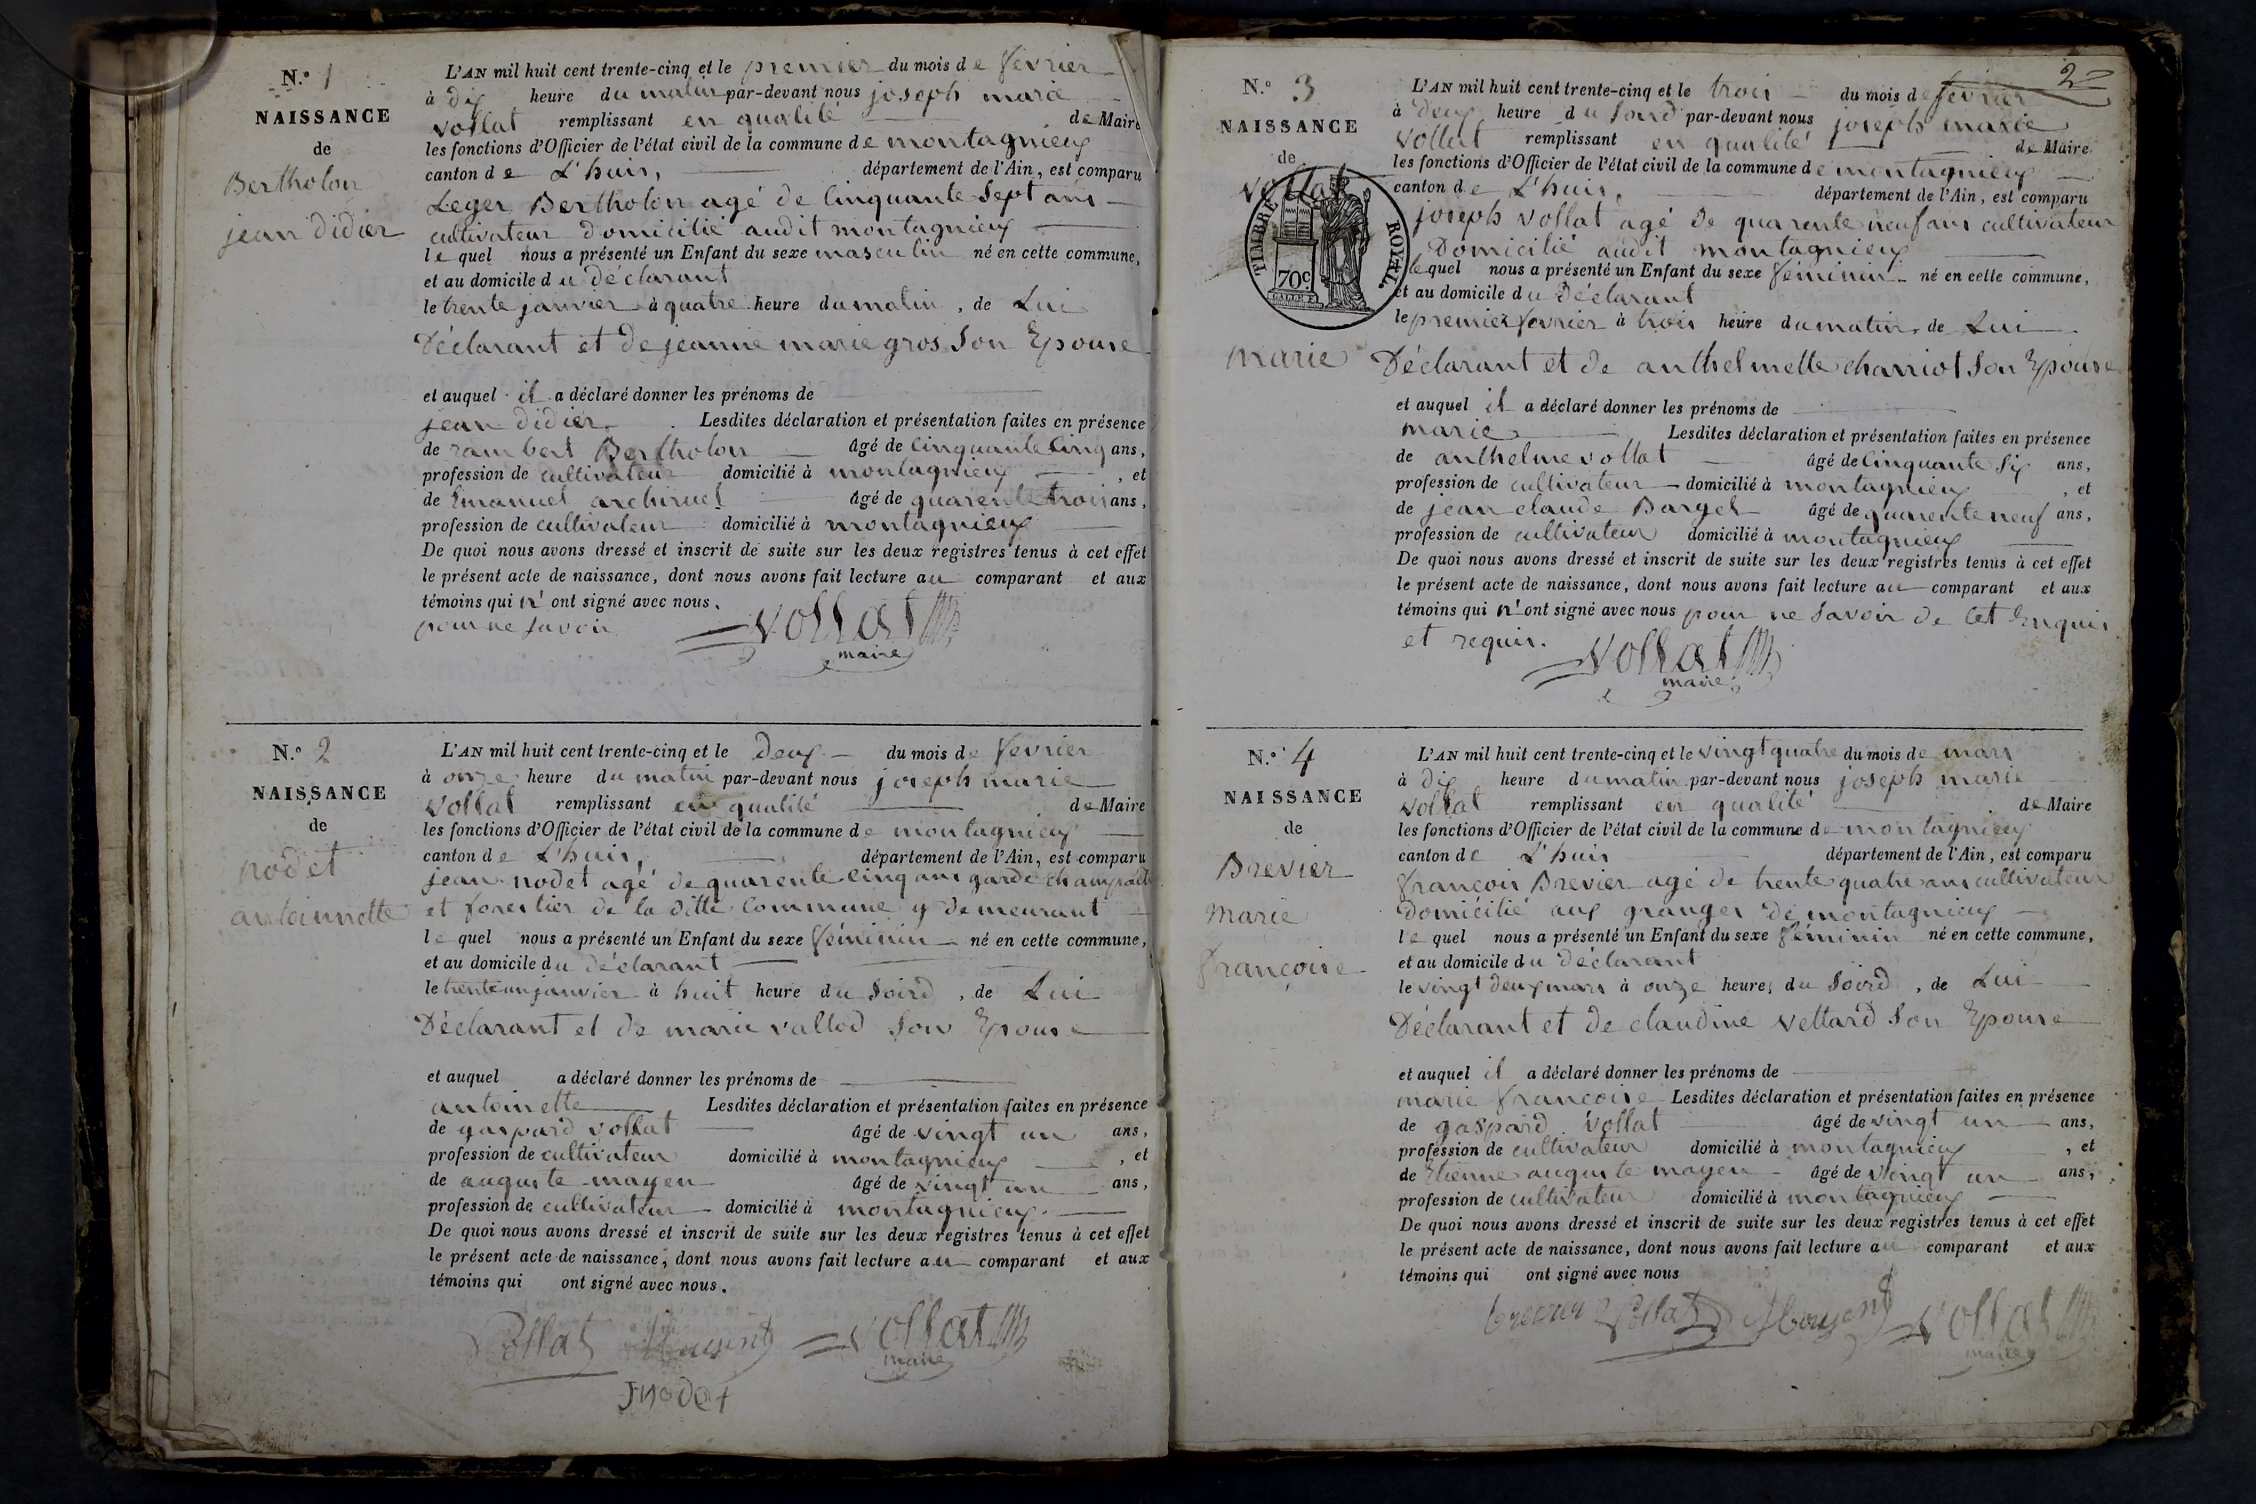 N.o 1
NAISSANCE
de
Bertholon
jean didier
L'AN mil huit cent trente-cinq et le premier du mois de fevrier
à dix heure du matin par-devant nous joseph marie
vollat remplissant en qualité de Maire
les fonctions d'Officier de l'état civil de la commune de montagnieux
canton de L'huis, département de l'Ain, est comparu
Leger Bertholon agé de Cinquante Sept ans
cultivateur Domicilié audit montagnieux
le quel nous a présenté un Enfant du sexe masculin né en cette commune,
et au domicile du déclarant
le trente janvier à quatre heure du matin, de Lui
Déclarant et de jeanne marie gros Son Epouse
et auquel il a déclaré donner les prénoms de
jean didier. Lesdites déclaration et présentation faites en présence
de rambert Bertholon âgé de Cinquante Cinq ans,
profession de cultivateur domicilié à montagnieux, et
de Emanuel âgé de quarente trois ans,
profession de cultivateur domicilié à montagnieux
De quoi nous avons dressé et inscrit de suite sur les deux registres tenus à cet effet
le présent acte de naissance, dont nous avons fait lecture au comparant et aux
témoins qui n'ont signé avec nous.
pour ne savoir
vollat
maire
N.o 2
NAISSANCE
de
nodet
antoinnette
L'AN mil huit cent trente-cinq et le Deux du mois de fevrier
à onze heure du matin par-devant nous joseph marie
vollat remplissant en qualité de Maire
les fonctions d'Officier de l'état civil de la commune de montagnieux
canton de L'huis, département de l'Ain, est comparu
jean nodet agé de quarente cinq ans garde champaitre
et forestier de la ditte Commune y demeurant
le quel nous a présenté un Enfant du sexe féminin né en cette commune,
et au domicile du déclarant
le trente un janvier à huit heure du Soird, de Lui
Déclarant et de marie vallod Son Epouse
et auquel a déclaré donner les prénoms de
antoinette Lesdites déclaration et présentation faites en présence
de gaspard vollat âgé de vingt un ans,
profession de cultivateur domicilié à montagnieux, et
de auguste mayen âgé de vingt un ans,
profession de cultivateur domicilié à montagnieux.
De quoi nous avons dressé et inscrit de suite sur les deux registres tenus à cet effet
le présent acte de naissance, dont nous avons fait lecture au comparant et aux
témoins qui ont signé avec nous.
Vollat vollat
maire
J nodet
2
N.o 3
NAISSANCE
de
vollat
TIMBRE ROYAL
70c
marie
L'AN mil huit cent trente-cinq et le trois du mois de fevrier
à deux heure du Soird par-devant nous joseph marie
vollat remplissant en qualité de Maire
les fonctions d'Officier de l'état civil de la commune de montagnieux
canton de L'huis, département de l'Ain, est comparu
joseph vollat agé de quarente neuf ans cultivateur
Domicilié audit montagnieux
le quel nous a présenté un Enfant du sexe féminin né en cette commune,
et au domicile du Déclarant
le premier fevrier à trois heure du matin, de Lui
Déclarant et de anthelmette charriot Son Epouse
et auquel il a déclaré donner les prénoms de
marie Lesdites déclaration et présentation faites en présence
de anthelme vollat âgé de Cinquante Six ans,
profession de cultivateur domicilié à montagnieux, et
de jean claude Barget âgé de quarente neuf ans,
profession de cultivateur domicilié à montagnieux
De quoi nous avons dressé et inscrit de suite sur les deux registres tenus à cet effet
le présent acte de naissance, dont nous avons fait lecture au comparant et aux
témoins qui n'ont signé avec nous pour ne Savoir de Cet Enquis
et requis.
vollat
maire
N.o 4
NAISSANCE
de
Brevier
Marie
françoise
L'AN mil huit cent trente-cinq et le vingt quatre du mois de mars
à dix heure du matin par-devant nous joseph marie
vollat remplissant en qualité de Maire
les fonctions d'Officier de l'état civil de la commune de montagnieux
canton de L'huis département de l'Ain, est comparu
françois Brevier agé de trente quatre ans cultivateur
Domicilié aux granges de montagnieux
le quel nous a présenté un Enfant du sexe féminin né en cette commune,
et au domicile du déclarant
le vingt deux mars à onze heures du Soird, de Lui
Déclarant et de claudine vettard Son Epouse
et auquel il a déclaré donner les prénoms de
marie francoise Lesdites déclaration et présentation faites en présence
de gaspard vollat âgé de vingt un ans,
profession de cultivateur domicilié à montagnieux, et
de Etienne auguste mayen âgé de vingt un ans,
profession de cultivateur domicilié à montagnieux
De quoi nous avons dressé et inscrit de suite sur les deux registres tenus à cet effet
le présent acte de naissance, dont nous avons fait lecture au comparant et aux
témoins qui ont signé avec nous
brevier Vollat vollat
maire